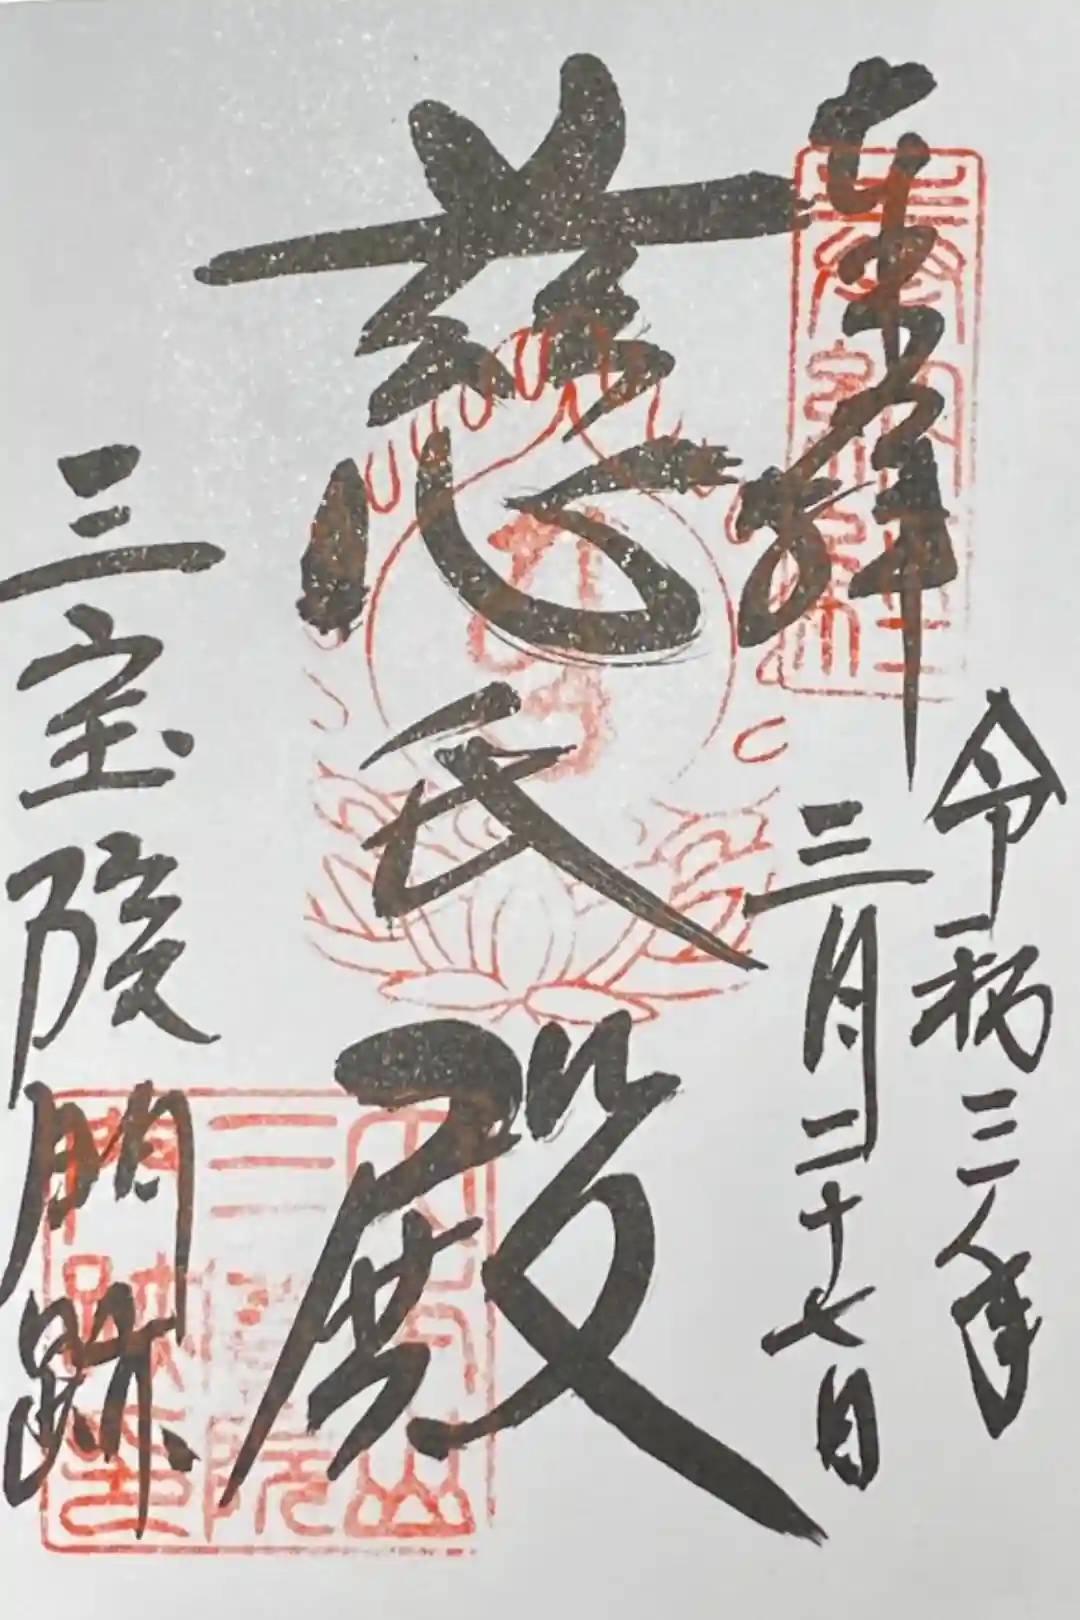 奉拝
令和三年
三月二十七日
慈氏殿
三宝院門跡